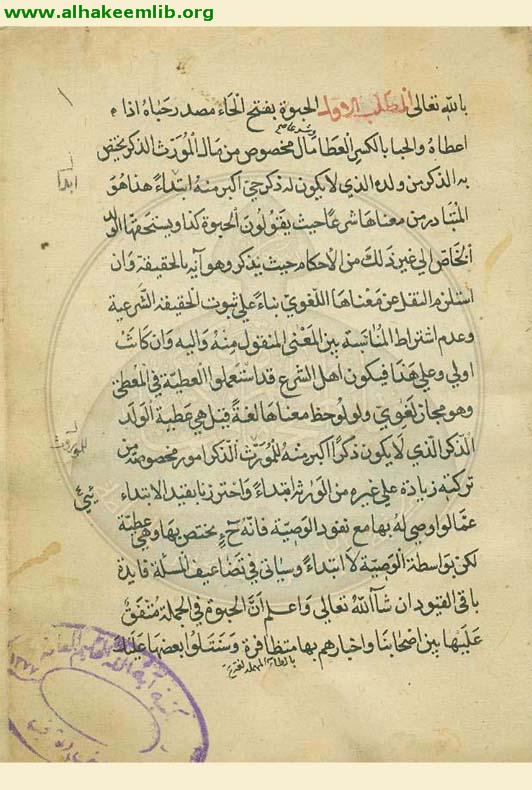 www.alhakeemlib.org
بالله تعالى المطلب الاول الحبوة بفتح الحاء مصدر حباه اذا
اعطاه والحبا بالكسر العطا مال مخصوص من مال المورث الذكر يختص
به الذكر من ولده الذي لا يكون له ذكر حي اكبر منه ابتداء هذا هو
ابدا
المتبادر من معناها شرعا حيث يقولون الحبوة كذا ويستحقها الولد
الخاص الى غير ذلك من الاحكام حيث يذكر وهو آية الحقيقة وان
استلزم النقل عن معناها اللغوي بناء على ثبوت الحقيقة الشرعية
وعدم اشتراط المناسبة بين المعنى المنقول منه واليه وان كانت
اولى وعلى هذا فيكون اهل الشرع قد استعملوا العطية في المعطى
وهو مجاز لغوي ولو لوحظ معناها لغة قيل هي عطية الولد
الذكر الذي لا يكون ذكرا اكبر منه للمورث الذكر امور مخصوصة من
للموروث
تركته زيادة على غيره من الورثة ابتداء واحترزنا بقيد الابتداء
عما لو اوصى له بها مع نفود الوصية فانه ح يختص بها وهي عطية
لكن بواسطة الوصية لا ابتداء وسياتى في تضاعيف المسلة فايدة
باقى القيود ان شا الله تعالى واعلم ان الحبوة في الجملة متفق
عليها بين اصحابنا واخبارهم بها متظافرة وسنتلوا بعضها عليك